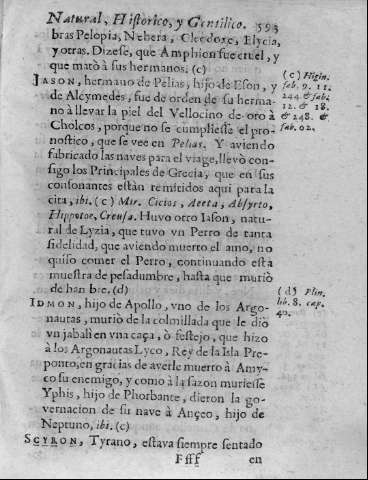 Natural, Historico, y Gentilico. 593
bras Pelopia, Nebera, Cleodoxe, Elycia,
y otras. Dizese, que Amphion fue cruel, y
que matò a sus hermanos. (c)
IASON, hermano de Pelias, hijo de Eson, y
de Alcymedes, fue de orden de su herma-
no à llevar la piel del Vellocino de oro à
Cholcos, porque no se cumpliesse el pro-
nostico, que se vee en Pelias. Y aviendo
fabricado las naves para el viage, llevò con-
sigo los Principales de Grecia, que en sus
consonantes estàn remitidos aqui para la
cita, ibi. (c) Mir. Cicios, Aeeta, Absyrto,
Hippotoe, Creusa. Huvo otro Iason, natu-
ral de Lyzia, que tuvo vn Perro de tanta
fidelidad, que aviendo muerto el amo, no
quiso comer el Perro, continuando esta
muestra de pesadumbre, hasta que muriò
de hanbre. (d)
IDMON, hijo de Apollo, vno de los Argo-
nautas, muriò de la colmillada que le diò
vn jabalì en vna caça, ò festejo, que hizo
à los Argonautas Lyco, Rey de la Isla Pre-
ponto, en gracias de averle muerto à Amy-
co su enemigo, y como à la sazon muriesse
Yphis, hijo de Phorbante, dieron la go-
vernacion de su nave à Ançeo, hijo de
Neptuno, ibi. (c)
SCYRON, Tyrano, estava siempre sentado
Ffff en
(c) Higin.
fab. 9. 11.
244 & fab.
12. & 18.
& 248. &
fab. 02.
(d) Plin.
lib. 8. cap.
40.